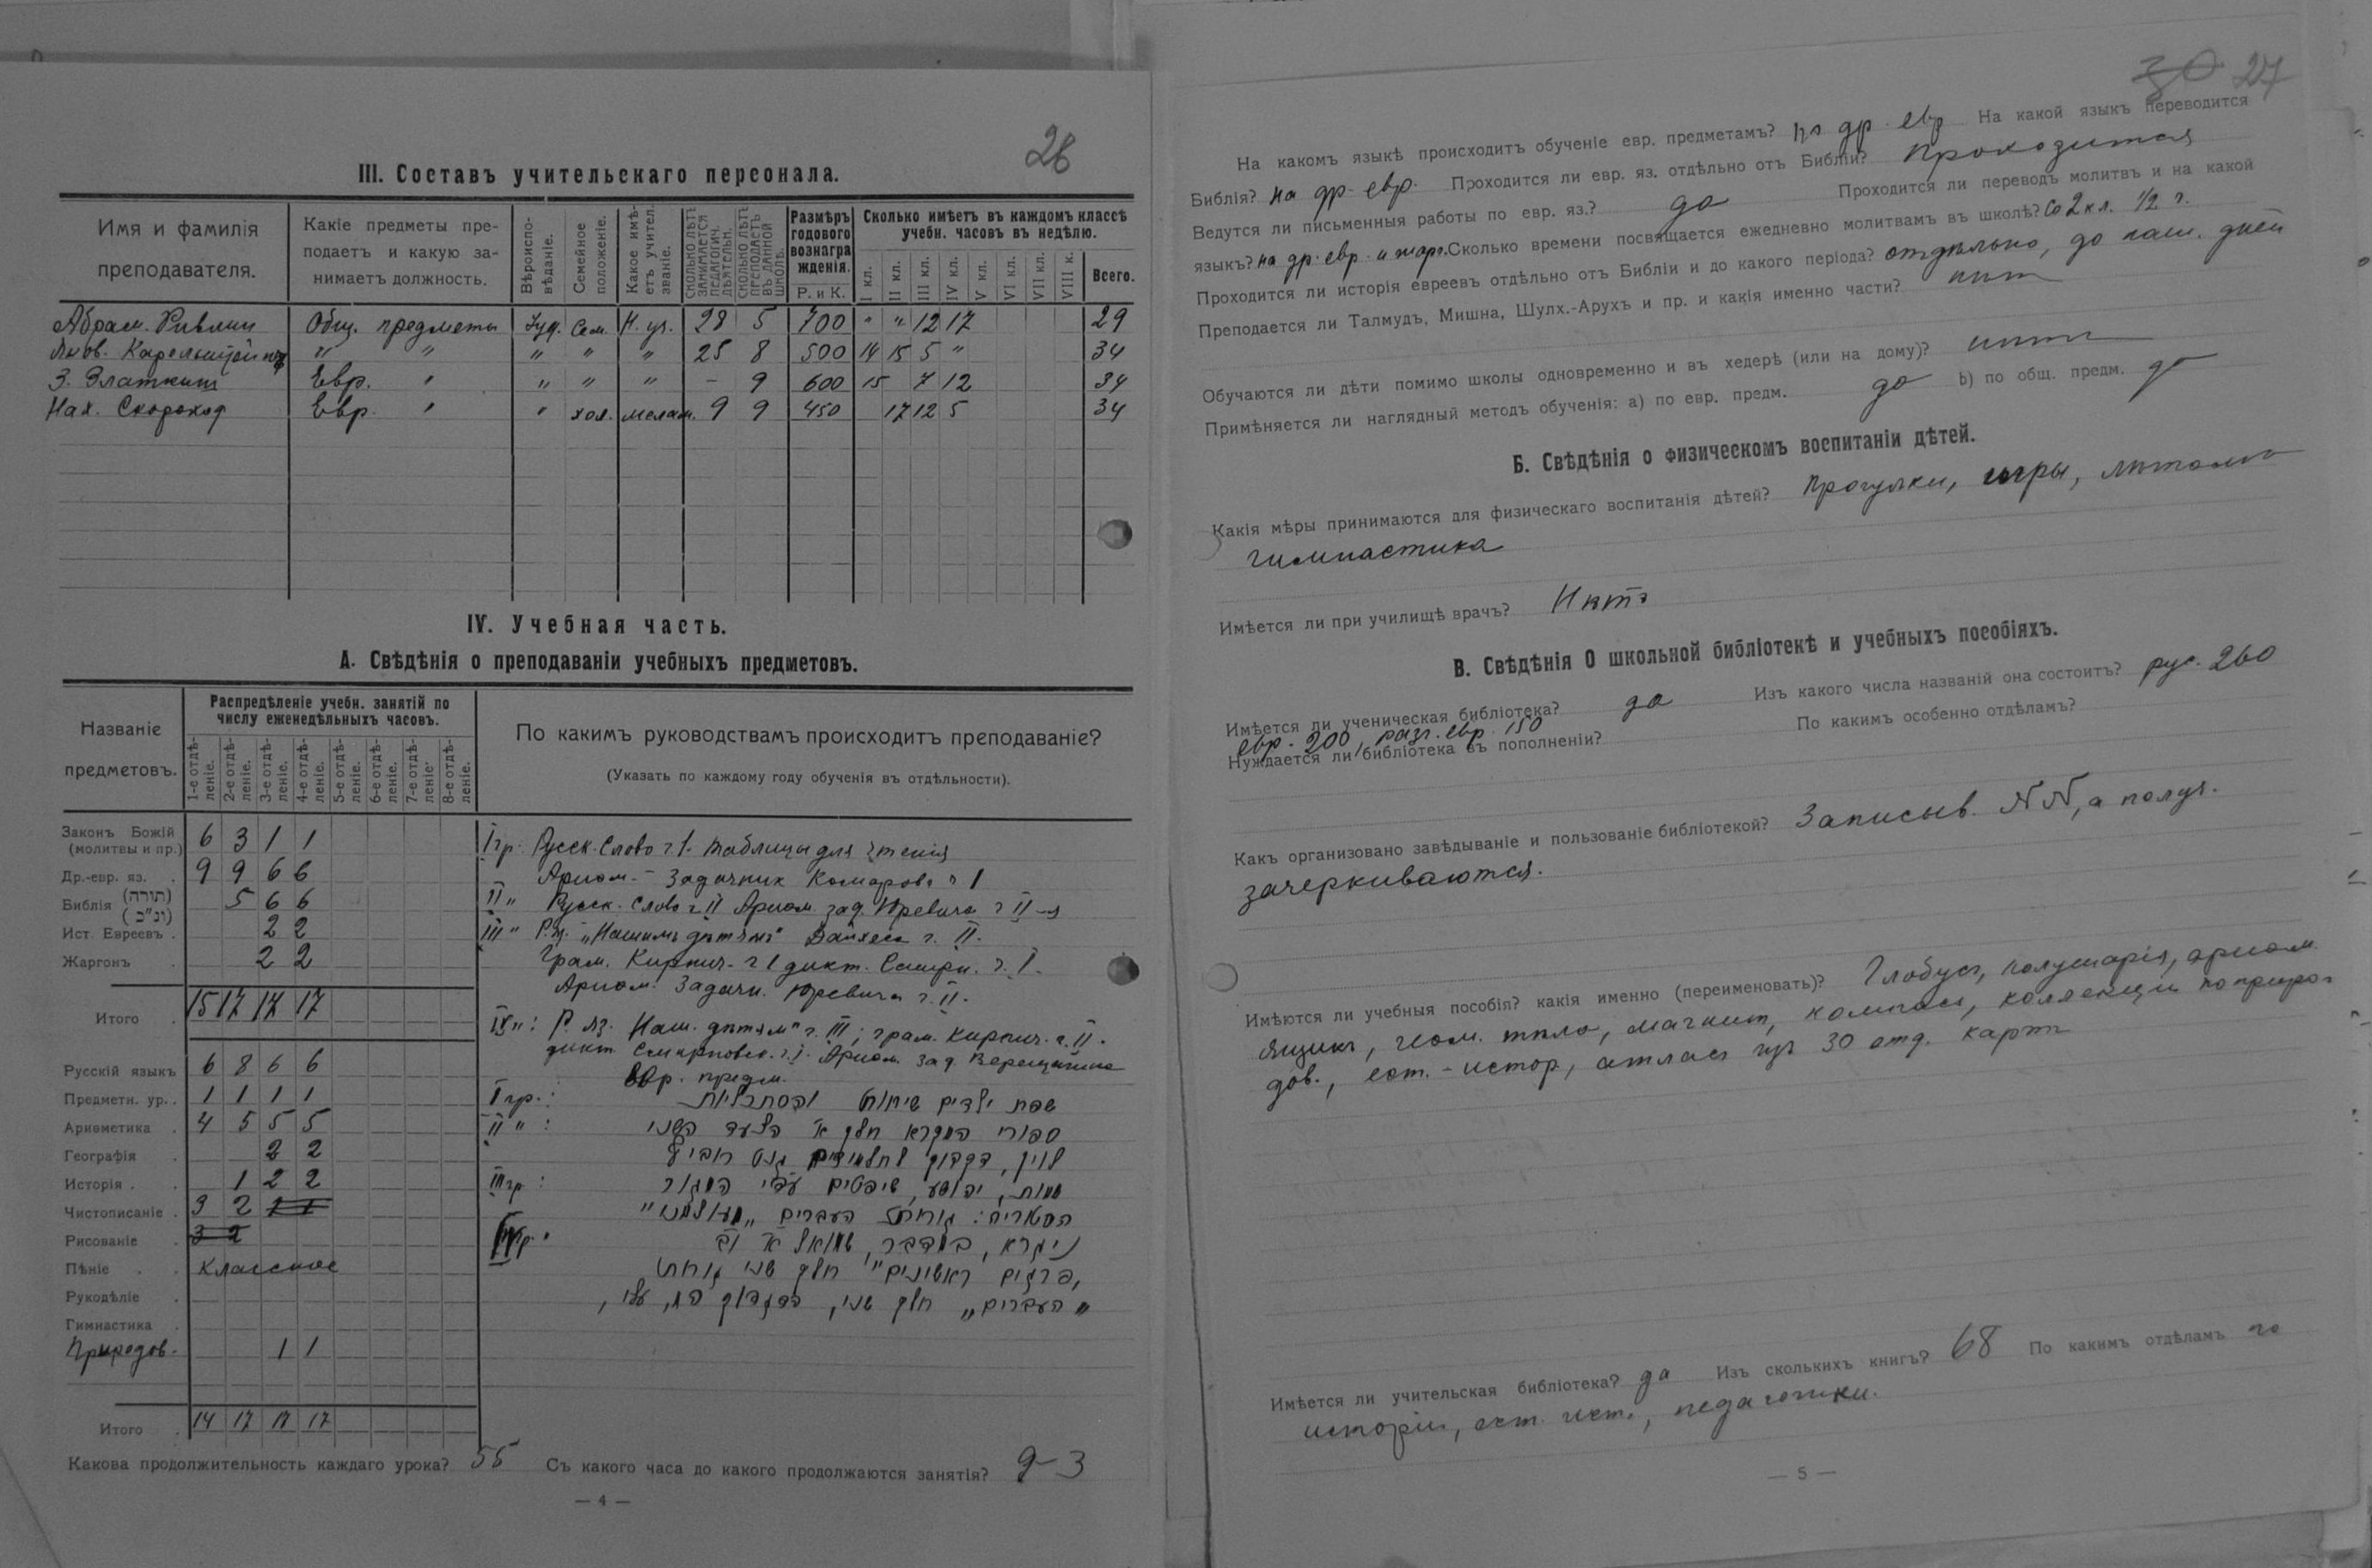 26
III. Составъ учительскаго персонала.
Имя и фамилія преподавателя.
Какіе предметы преподаетъ и какую занимаетъ должность.
Вѣроисповѣданіе.
Семейное положеніе.
Какое имѣетъ учител. званіе.
Сколько лѣтъ занимается педагогич. дѣятельн.
Сколько лѣтъ преподаетъ въ данной школѣ.
Размѣръ годового вознагражденія.
Р. и К.
Сколько имѣетъ въ каждомъ классѣ учебн. часовъ въ недѣлю.
I кл. II кл. III кл. IV кл. V кл. VI кл. VII кл. VIII к. Всего.
Абрам. Ривлин Общ. предметы Іуд. Сем. Н. уч. 28 5 700 " " 12 17 29
Яков. " " " " " 25 8 500 14 15 5 " 34
З. Златкин Евр. " " " " - 9 600 15 7 12 34
Нах. Скороход Евр. " " хол. мелам. 9 9 450 17 12 5 34
IV. Учебная часть.
А. Свѣдѣнія о преподаваніи учебныхъ предметовъ.
Названіе предметовъ.
Распредѣленіе учебн. занятій по числу еженедѣльныхъ часовъ.
1-е отдѣленіе. 2-е отдѣленіе. 3-е отдѣленіе. 4-е отдѣленіе. 5-е отдѣленіе. 6-е отдѣленіе. 7-е отдѣленіе. 8-е отдѣленіе.
По какимъ руководствамъ происходитъ преподаваніе?
(Указать по каждому году обученія въ отдѣльности).
Законъ Божій (молитвы и пр.) 6 3 1 1
Др.-евр. яз. 9 9 6 6
Библія (תורה) (ונ"כ) 5 6 6
Ист. Евреевъ 2 2
Жаргонъ 2 2
Итого 15 17 17 17
Русскій языкъ 6 8 6 6
Предметн. ур. 1 1 1 1
Ариѳметика 4 5 5 5
Географія 2 2
Исторія 1 2 2
Чистописаніе 3 2 1 1
Рисованіе 3 2
Пѣніе Классное
Рукодѣліе
Гимнастика
Природов. 1 1
Итого 14 17 17 17
I гр. Русск. Слово ч. I. таблицы для чтенія
Арифм. - Задачник Комарова ч I
II " Русск. Слово ч II Арифм. зад. Юревича ч II
III " Р. яз. "Нашимъ дѣтямъ" ч. II.
Грам. Кирпич. ч I дикт. Смирн. ч. I.
Арифм. Задачн. Юревича ч. II.
IV " : Р. яз. Наш. дѣтям" ч. III; грам. Кирпич. ч. II.
дикт. Смирновск. ч. I. Арифм. Зад. Верещагина
Евр. предм.
I гр. : שפת ילדים
II " : ספורי המקרא חלק א' הצעד השני
דקדוק
III гр : שמות, יהושע, שופטים
העברים
IV гр. במדבר, שמואל א' וב'
פרקים ראשונים" חלק שני
"העברים" חלק שני,
Какова продолжительность каждаго урока? 55 Съ какого часа до какого продолжаются занятія? 9-3
— 4 —
30 27
На какомъ языкѣ происходитъ обученіе евр. предметамъ? на др. евр На какой языкъ переводится
Библія? на др. евр. Проходится ли евр. яз. отдѣльно отъ Библіи? Проходится
Ведутся ли письменныя работы по евр. яз.? да Проходится ли переводъ молитвъ и на какой
языкъ? на др. евр. и жарг. Сколько времени посвящается ежедневно молитвамъ въ школѣ? Со 2 кл. 1/2 ч.
Проходится ли исторія евреевъ отдѣльно отъ Библіи и до какого періода? отдѣльно, до наш. дней
Преподается ли Талмудъ, Мишна, Шулх.-Арухъ и пр. и какія именно части? нѣт
Обучаются ли дѣти помимо школы одновременно и въ хедерѣ (или на дому)? нѣтъ
Примѣняется ли наглядный методъ обученія: а) по евр. предм. да b) по общ. предм. да
Б. Свѣдѣнія о физическомъ воспитаніи дѣтей.
Какія мѣры принимаются для физическаго воспитанія дѣтей? Прогулки, игры, лѣтомъ
гимнастика
Имѣется ли при училищѣ врачъ? Нѣтъ
В. Свѣдѣнія О школьной библіотекѣ и учебныхъ пособіяхъ.
Имѣется ли ученическая библіотека? да Изъ какого числа названій она состоитъ? рус. 260
евр. 200, разг. евр. 150 По какимъ особенно отдѣламъ?
Нуждается ли библіотека въ пополненіи?
Какъ организовано завѣдываніе и пользованіе библіотекой? Записыв. №№, а получ.
зачеркиваются.
Имѣются ли учебныя пособія? какія именно (переименовать)? Глобусъ, полушарія, арифм.
ящикъ, геом. тѣла, магнит, компасъ, коллекціи по природов.,
ест. - истор, атласъ изъ 30 отд. картъ
Имѣется ли учительская библіотека? да Изъ сколькихъ книгъ? 68 По какимъ отдѣламъ по
исторіи, ест. ист., педагогики.
— 5 —